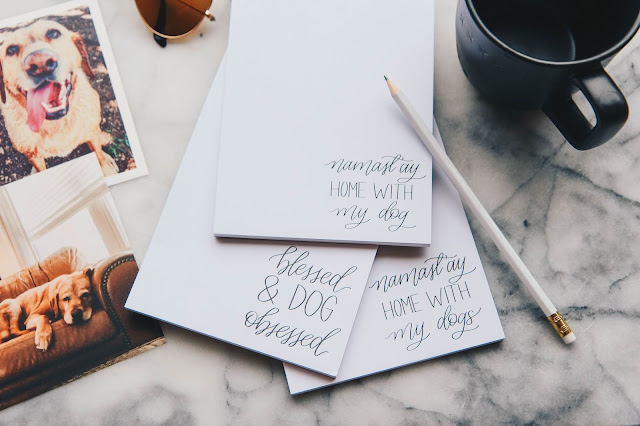 namast'ay
HOME WITH
my dog
blessed
& DOG
obsessed
namast'ay
HOME WITH
my dogs